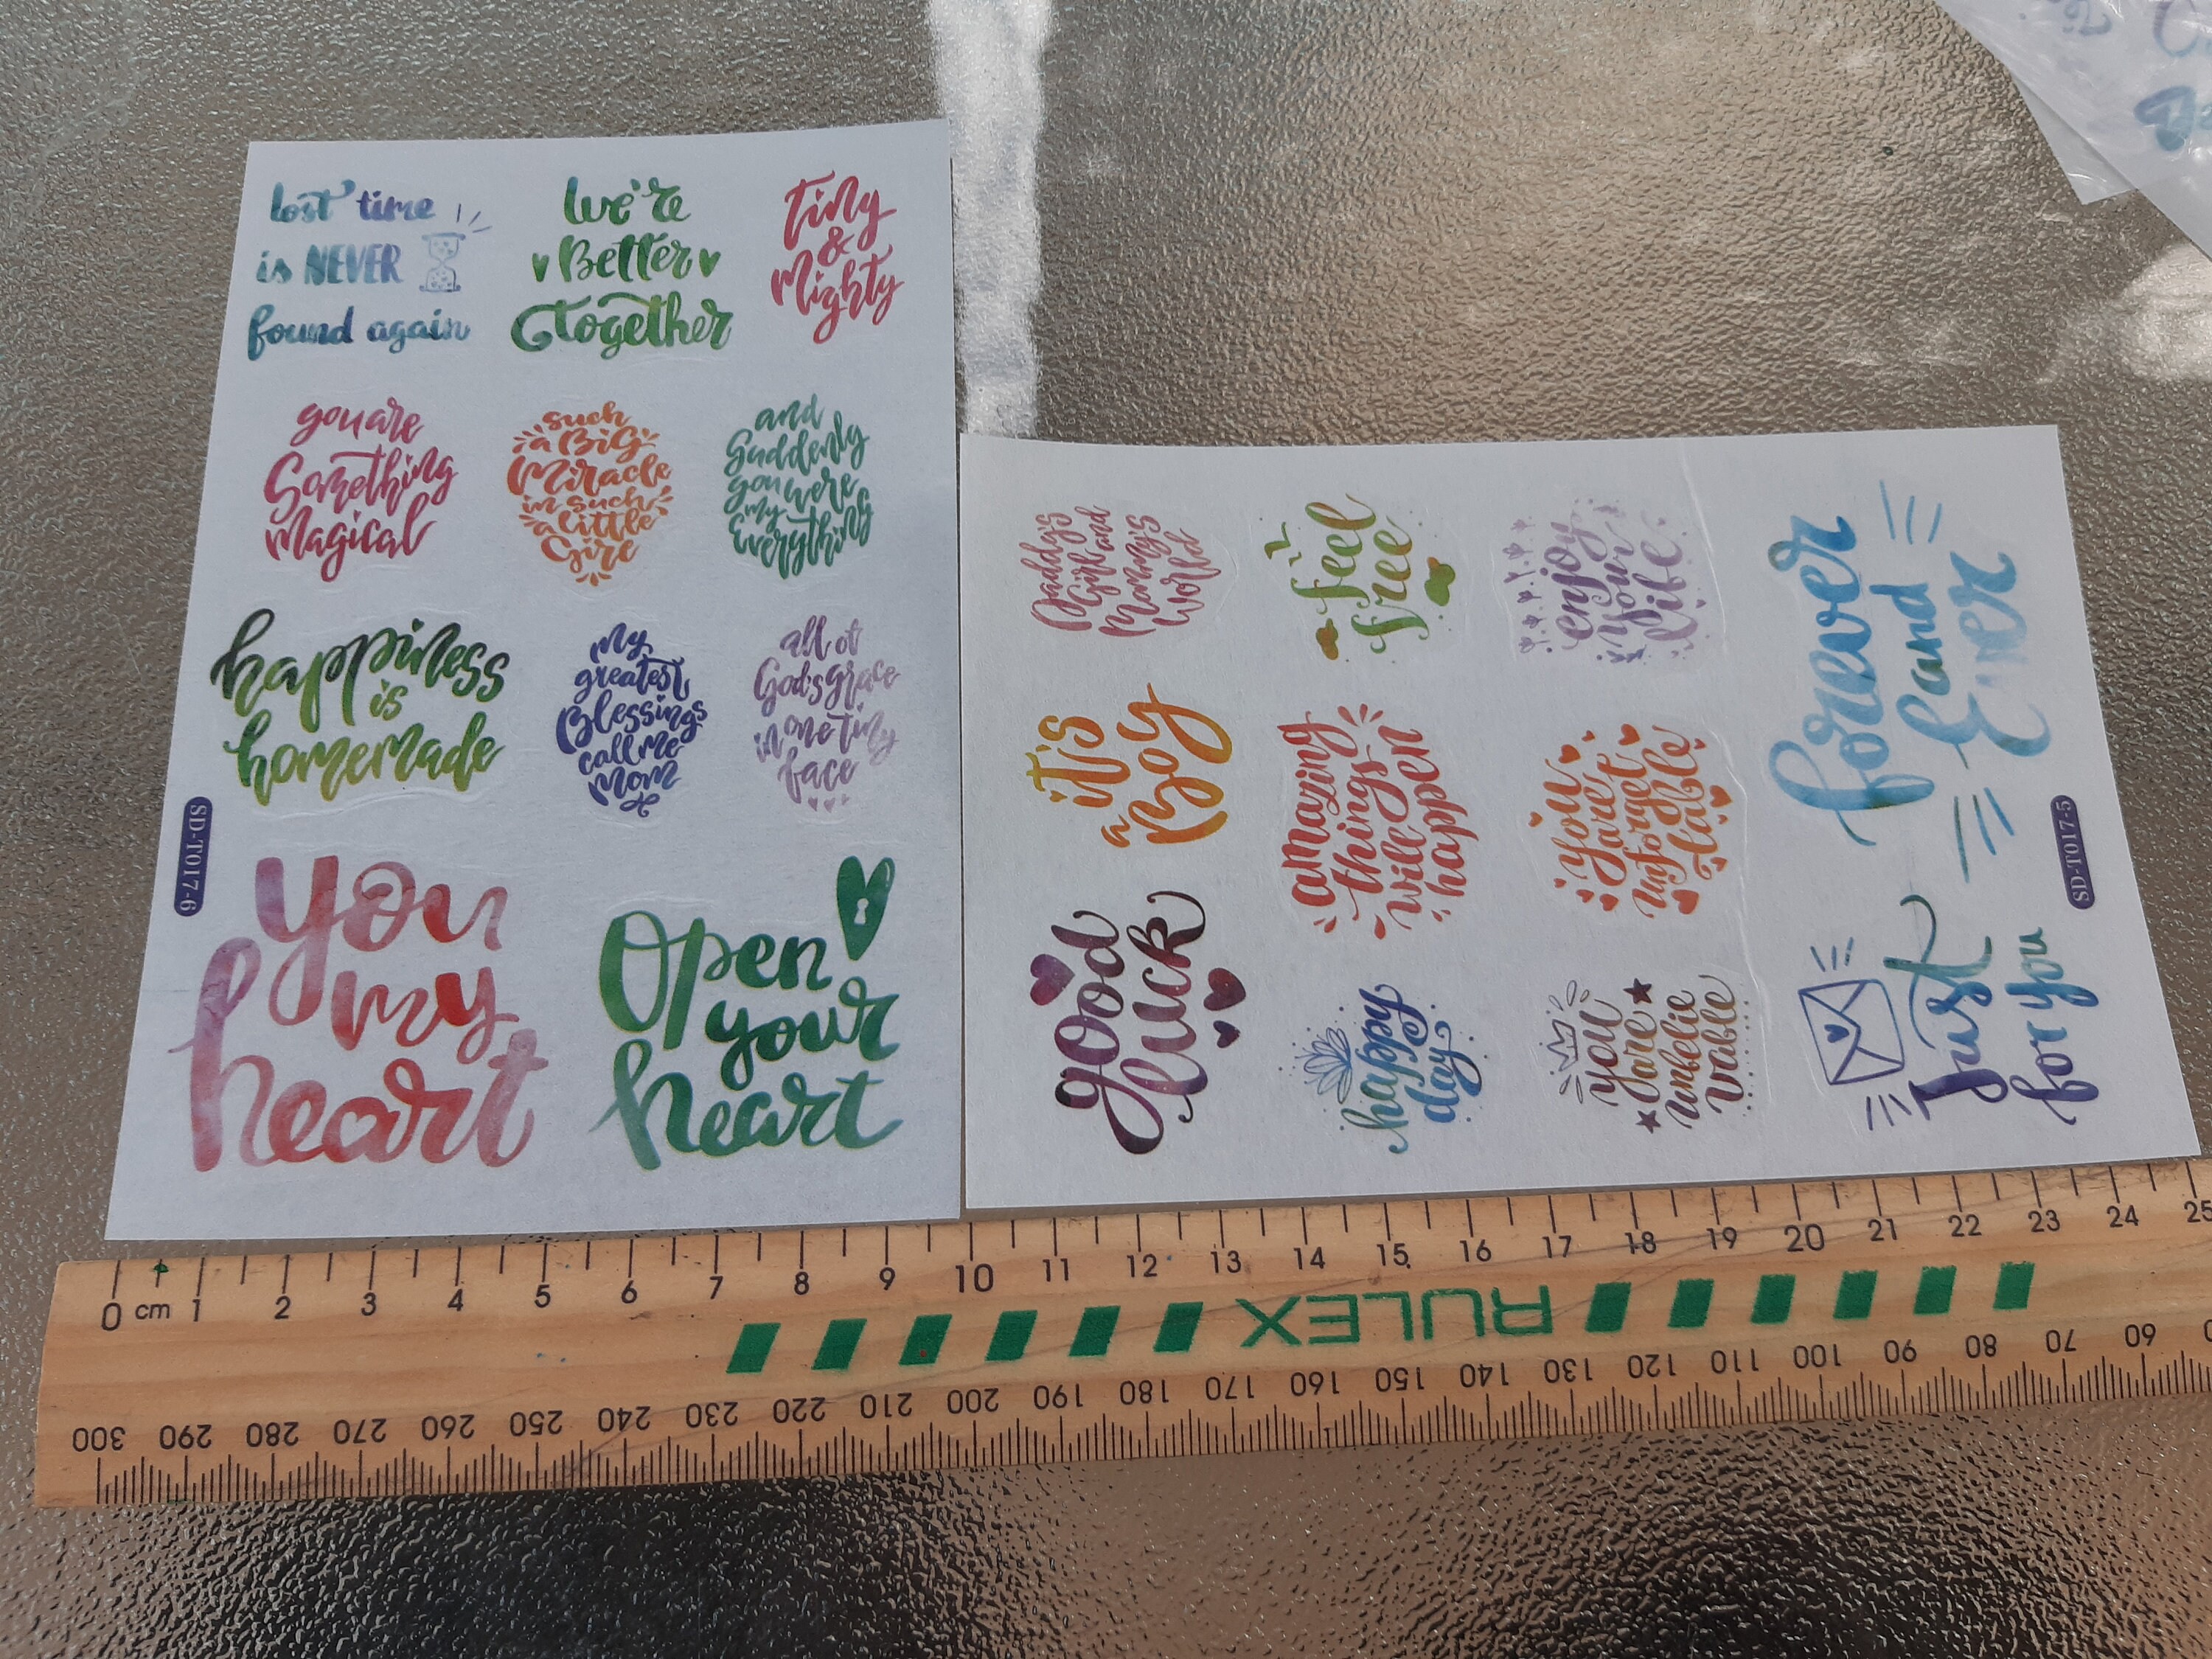 lost time
is NEVER
found again
we're
Better
together
Tiny
&
Mighty
you are
Something
Magical
such
a BiG
Miracle
in such
a little
Girl
and
Suddenly
you were
my
Everything
happiness
is
homemade
my
greatest
Blessings
call me
Mom
all of
God's grace
in one tiny
face
SD-T017-6
you
my
heart
Open
your
heart
Daddy's
Girl and
Mommy's
World
feel
free
enjoy
your
life
forever
and
Ever
it's
a Boy
amazing
things
will
happen
you
are
unforget
table
SD-T017-5
good
luck
happy
day
you
are
unbelie
vable
Just
for you
0 cm 1 2 3 4 5 6 7 8 9 10 11 12 13 14 15 16 17 18 19 20 21 22 23 24 25
RULEX
300 290 280 270 260 250 240 230 220 210 200 190 180 170 160 150 140 130 120 110 100 90 80 70 60